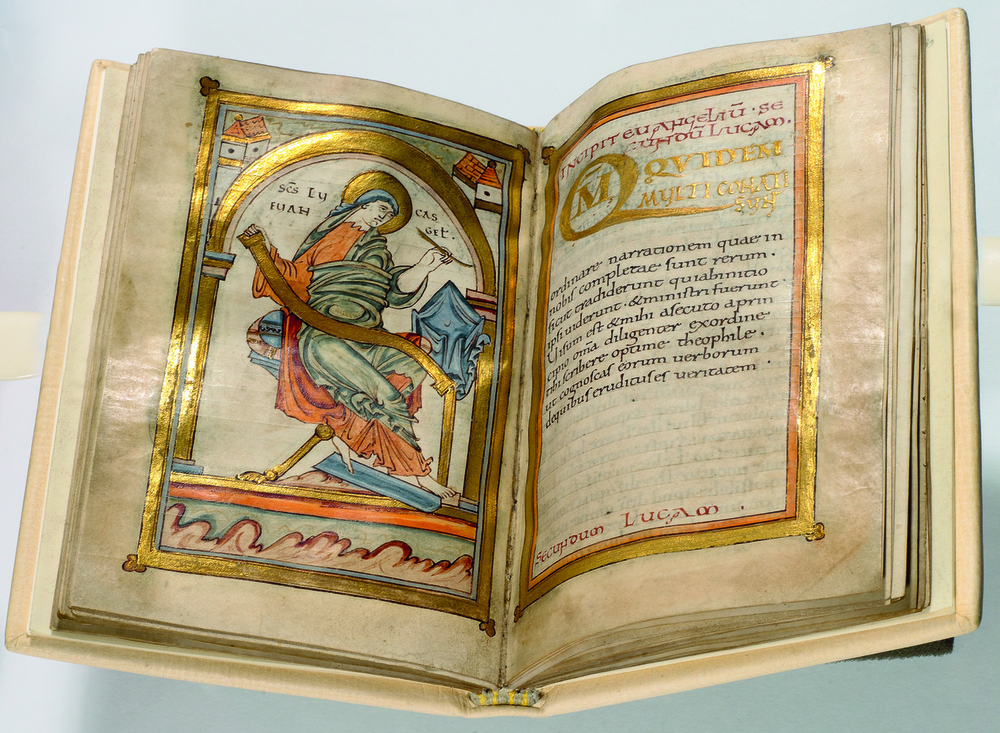 SC̄S LU CAS
EUAN GEL̄.
INCIPIT EUANGELIŪ · SE
CUNDŪ LUCAM.
QM̄ QVIDEM
MULTI CONATI
SUNT
ordinare narrationem quae in
nobis completae sunt rerum.
sicut tradiderunt quiabinitio
ipsi uiderunt · &ministri fuerunt ·
Uisum est &mihi asecuto aprin
cipio om̄a diligenter exordine
tibi scribere optime theophile.
ut cognoscas eorum uerborum
dequibus eruditus es ueritatem.
SECUNDUM LUCAM